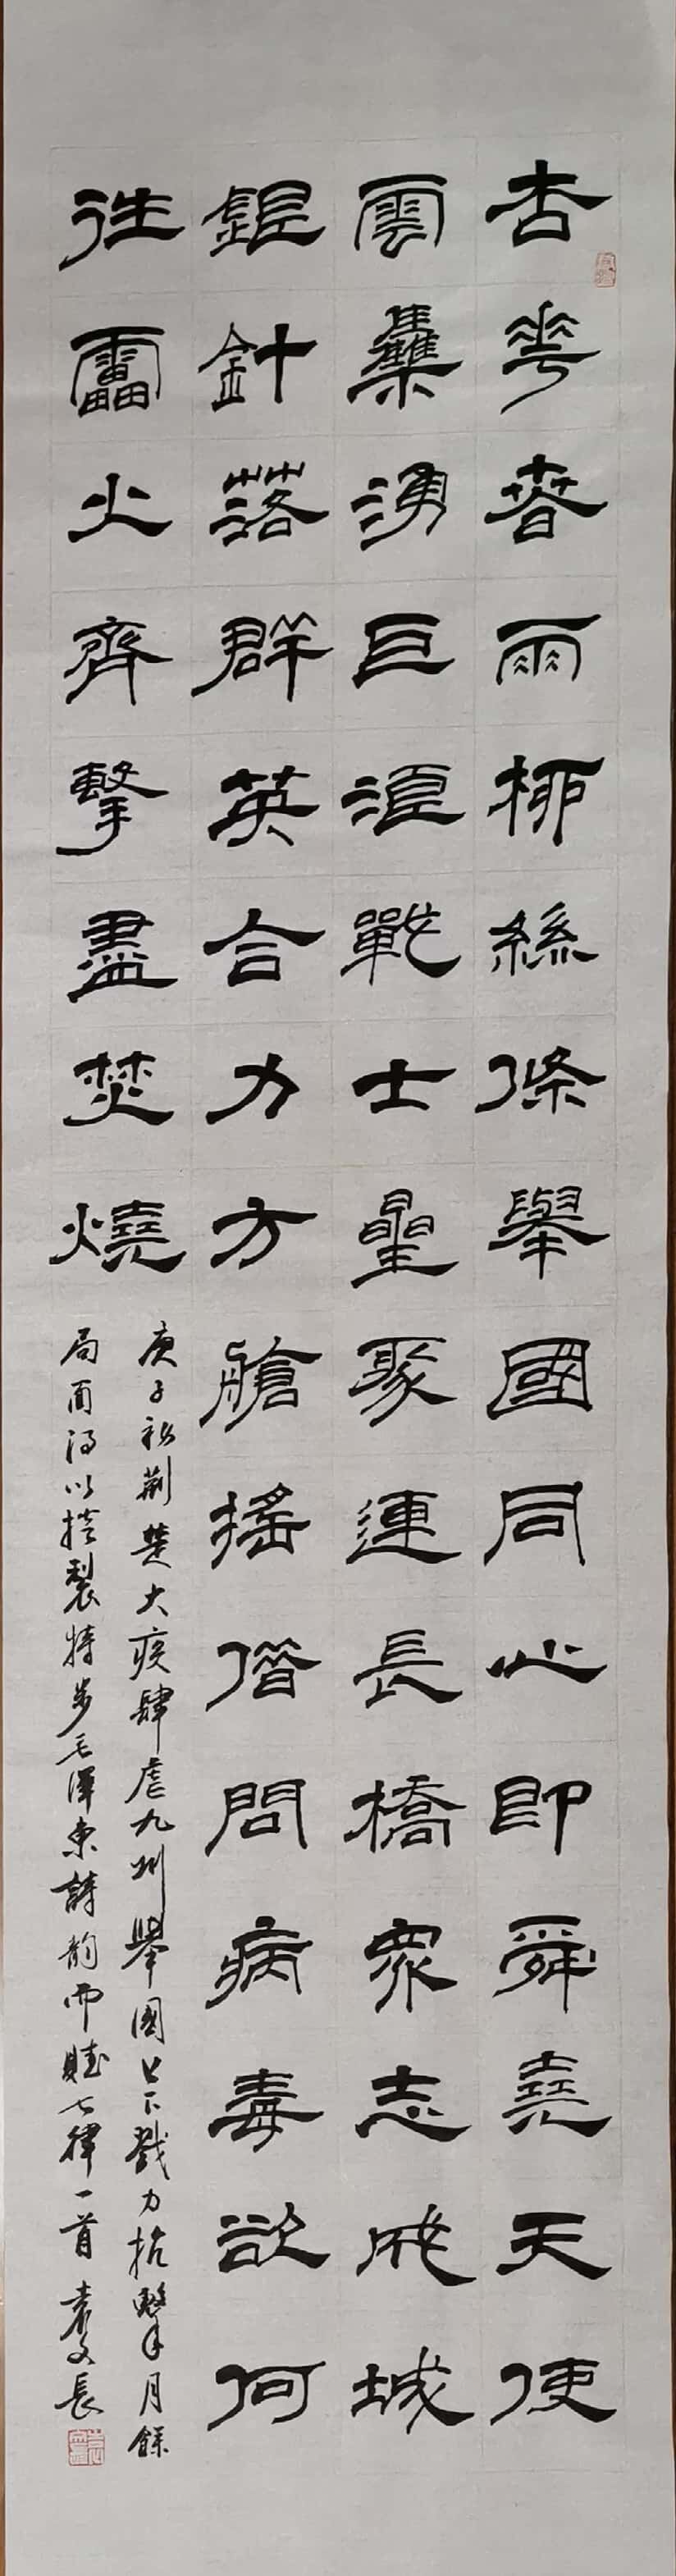 杏華春雨柳絲條舉國同心即舜堯天使
雲雧湧巨浪戰士星聚連長橋眾志成城
銀針落群英合力方艙搖借問病毒欲何
往靁火齊擊盡焚燒
庚子初荊楚大疫肆虐九州舉國上下戮力抗擊月餘
局面得以控製特步毛澤東詩韵而賦七律一首 袁文長